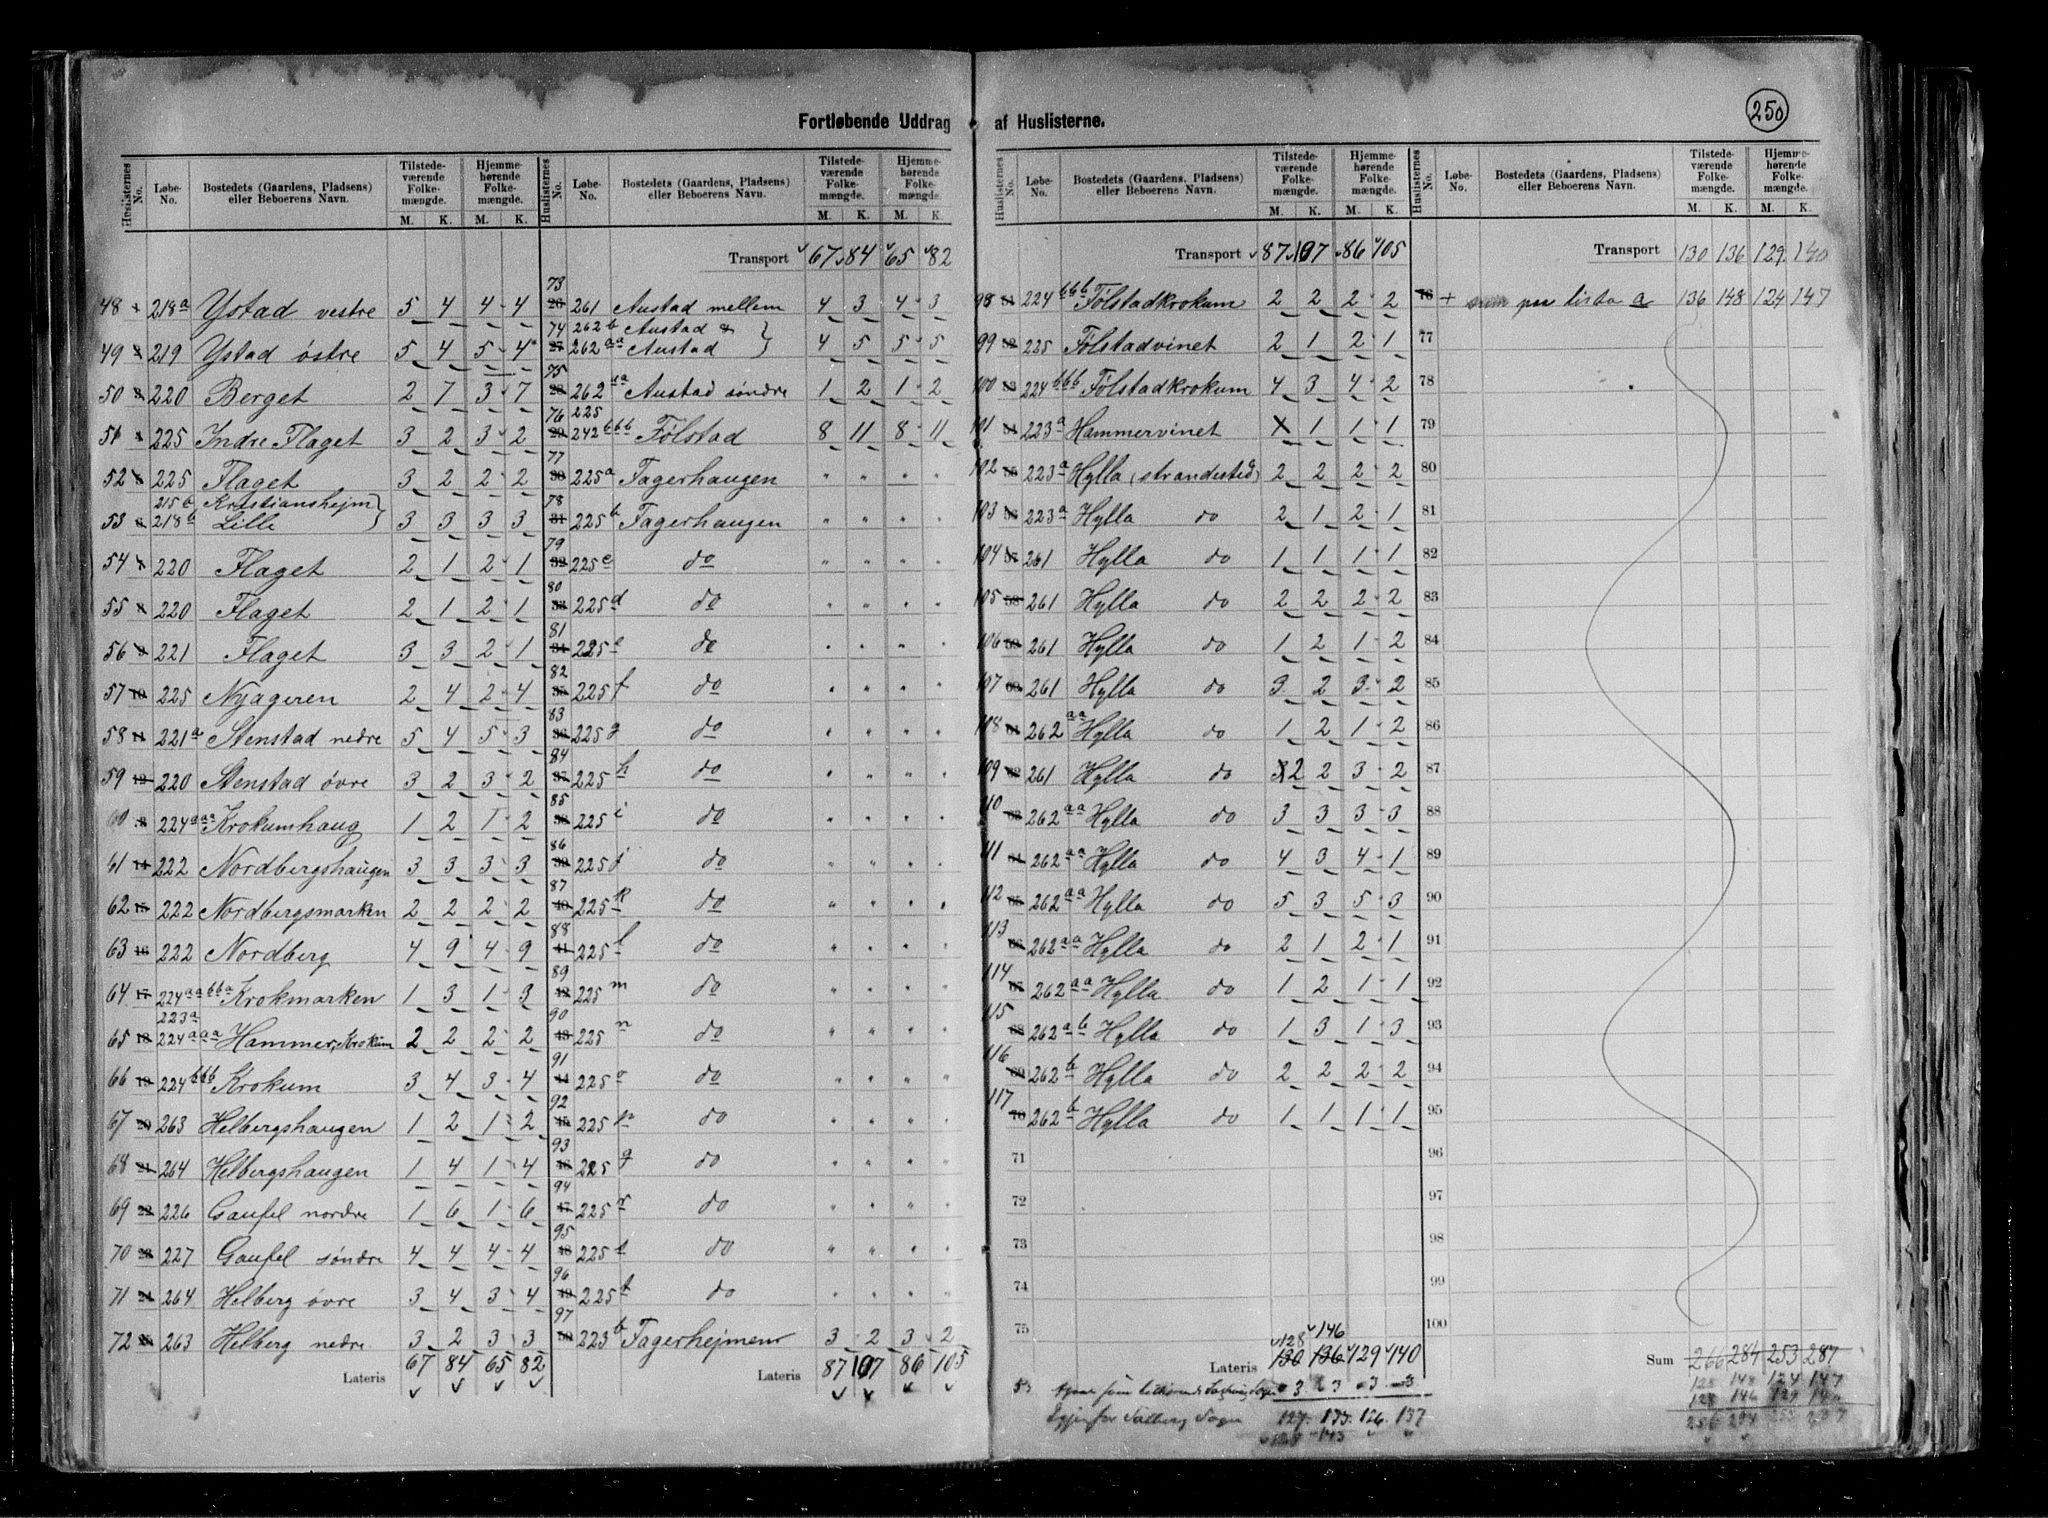 250
Fortløbende Uddrag af Huslisterne.
Huslisternes No. Løbe-No. Bostedets (Gaardens, Pladsens) eller Beboerens Navn. Tilstedeværende Folkemængde. M. K. Hjemmehørende Folkemængde. M. K.
48 218a Ystad vestre 5 4 4 4
49 219 Ystad østre 5 4 5 4
50 220 Berget 2 7 3 7
51 225 Indre Flaget 3 2 3 2
52 225 Flaget 3 2 2 2
215b Kristianshejm
53 218b Lilli 3 3 3 3
54 220 Flaget 2 1 2 1
55 220 Flaget 2 1 2 1
56 221 Flaget 3 3 2 1
57 225 Nyageren 2 4 2 4
58 221a Stenstad nedre 5 4 5 3
59 220 Stenstad övre 3 2 3 2
60 224aaa Krokumhaug 1 2 1 2
61 222 Nordbergshaugen 3 3 3 3
62 222 Nordbergsmarken 2 2 2 2
63 222 Nordberg 4 9 4 9
64 224aabba Krokmarken 1 3 1 3
223a
65 224aaa Hammer, Krokum 2 2 2 2
66 224bbb Krokum 3 4 3 4
67 263 Helbergshaugen 1 2 1 2
68 264 Helbergshaugen 1 4 1 4
69 226 Gaufel nordre 1 6 1 6
70 227 Gaufel søndre 4 4 4 4
71 264 Helberg övre 3 4 3 4
72 263 Helberg nedre 3 2 3 3
Lateris 67 84 65 82
Huslisternes No. Løbe-No. Bostedets (Gaardens, Pladsens) eller Beboerens Navn. Tilstedeværende Folkemængde. M. K. Hjemmehørende Folkemængde. M. K.
Transport 67 84 65 82
73 261 Austad mellem 4 3 4 3
74 262b Austad &
262aa Austad 4 5 5 5
75 262aa Austad søndre 1 2 1 2
225
76 242bbb Følstad 8 11 8 11
77 225a Fagerhaugen " " " "
78 225b Fagerhaugen " " " "
79 225c do " " " "
80 225d do " " " "
81 225e do " " " "
82 225f do " " " "
83 225g do " " " "
84 225h do " " " "
85 225i do " " " "
86 225j do " " " "
87 225k do " " " "
88 225l do " " " "
89 225m do " " " "
90 225n do " " " "
91 225o do " " " "
92 225p do " " " "
93 225q do " " " "
94 225r do " " " "
95 225s do " " " "
96 225t do " " " "
97 223b Fagerhejmen 3 2 3 2
Lateris 87 107 86 105
Huslisternes No. Løbe-No. Bostedets (Gaardens, Pladsens) eller Beboerens Navn. Tilstedeværende Folkemængde. M. K. Hjemmehørende Folkemængde. M. K.
Transport 87 107 86 105
98 224bbb Følstadkrokum 2 2 2 2
99 225 Følstadvinet 2 1 2 1
100 224bbb Følstadkrokum 4 3 4 2
101 223a Hammervinet 1 1 1
102 223a Hylla (strandested) 2 2 2 2
103 223a Hylla do 2 1 2 1
104 261 Hylla do 1 1 1 1
105 261 Hylla do 2 2 2 2
106 261 Hylla do 1 2 1 2
107 261 Hylla do 3 2 3 2
108 262aa Hylla do 1 2 1 2
109 261 Hylla do 2 2 3 2
110 262aa Hylla do 3 3 3 3
111 262aa Hylla do 4 3 4 1
112 262aa Hylla do 5 3 5 3
113 262aa Hylla do 2 1 2 1
114 262aa Hylla do 1 2 1 1
115 262ab Hylla do 1 3 1 3
116 262b Hylla do 2 2 2 2
117 262b Hylla do 1 1 1 1
71
72
73
74
75
128 146
Lateris 130 136 129 140
3 3 3 3
Igjen for Salberg Sogn 127 133 126 137
143
Huslisternes No. Løbe-No. Bostedets (Gaardens, Pladsens) eller Beboerens Navn. Tilstedeværende Folkemængde. M. K. Hjemmehørende Folkemængde. M. K.
Transport 130 136 129 140
76 + sum paa lista a 136 148 124 147
77
78
79
80
81
82
83
84
85
86
87
88
89
90
91
92
93
94
95
96
97
98
99
100
Sum 266 284 253 287
128 148 124 147
128 146 129 140
256 294 253 287